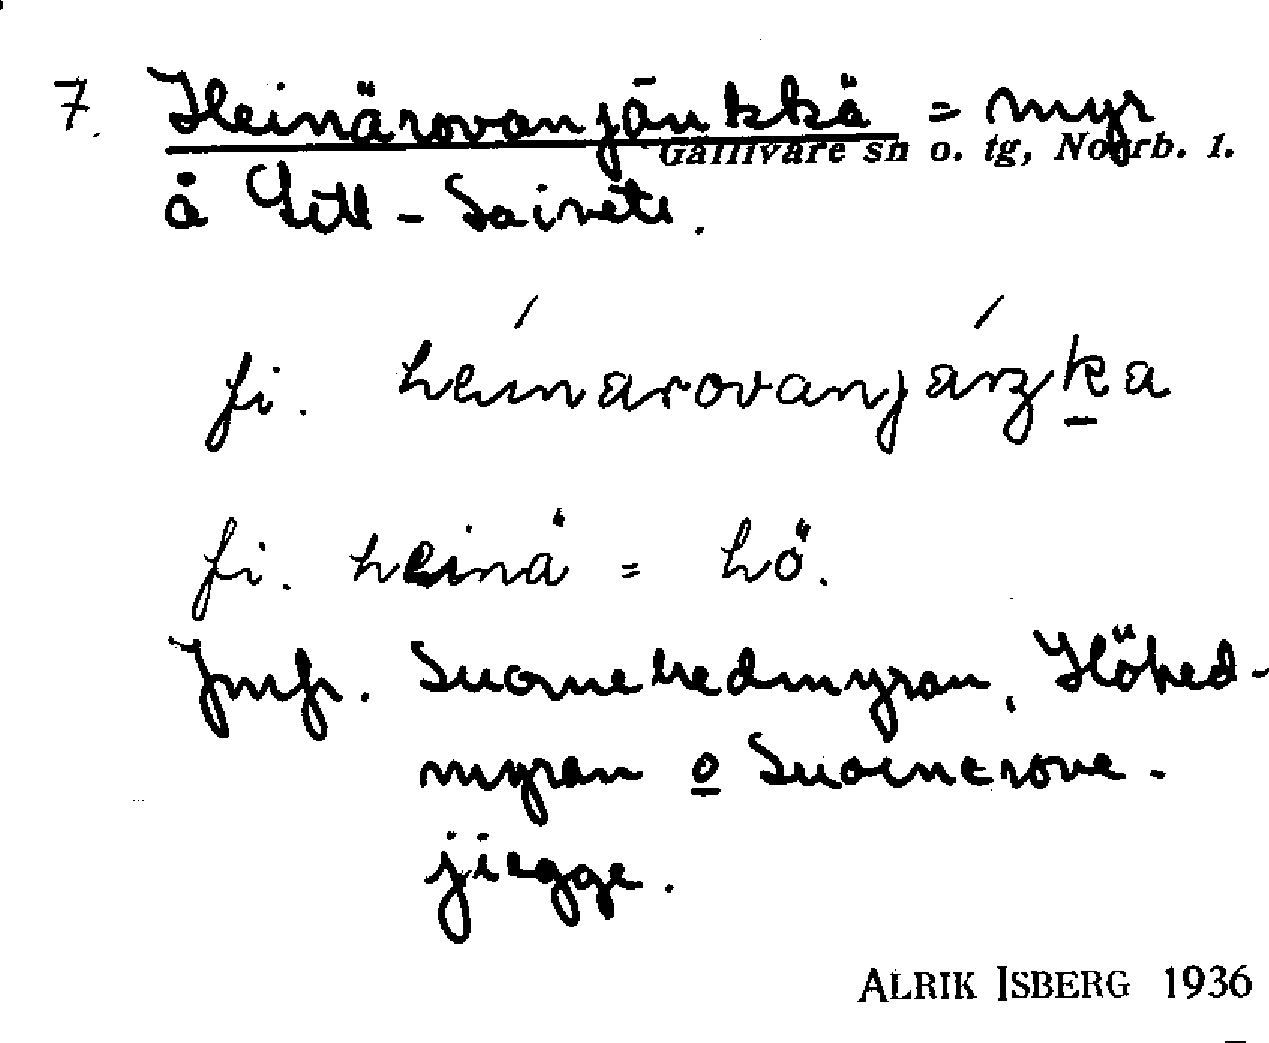 7. Heinärovanjänkkä = myr
Gällivare sn o. tg, Norrb. l.
å Lill-Saivets.
fi. heinarovanjáŋka
fi. heinä = hö.
Jmfr. Suoinehedmyran, Höhed-
myran o Suoinerove-
jiegge.
ALRIK ISBERG 1936